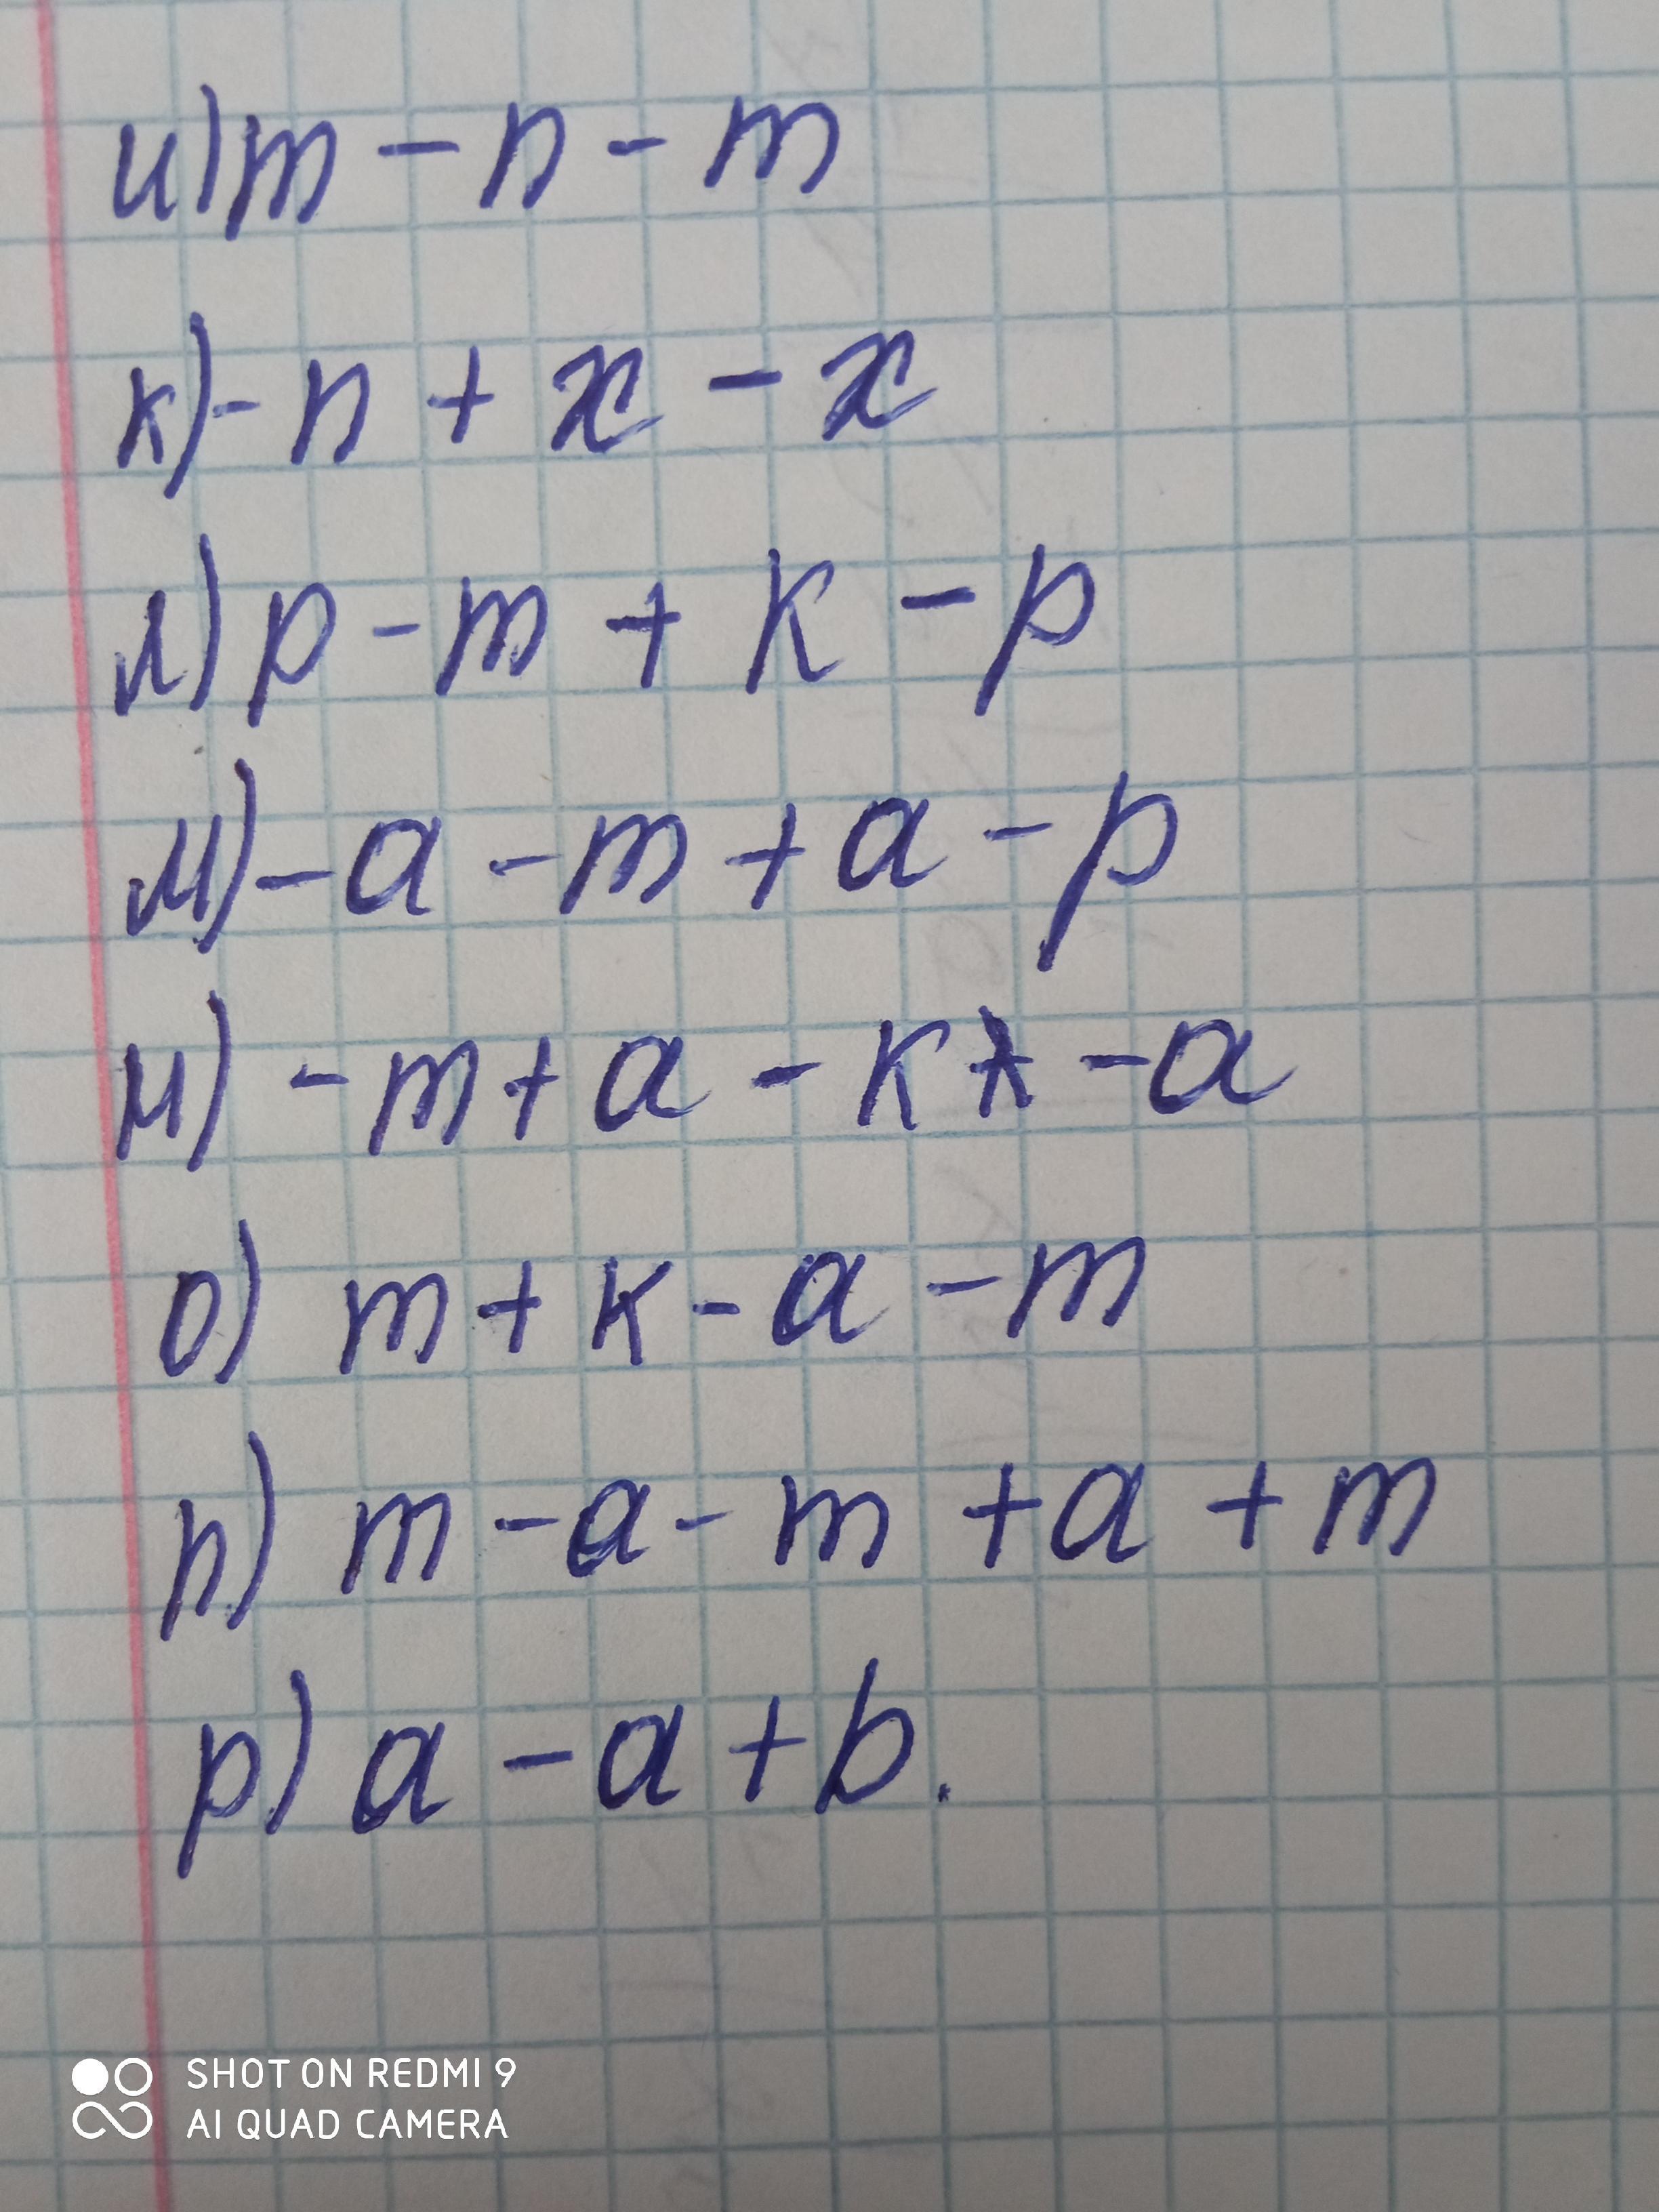 и) m - n - m
к) - n + x - x
л) p - m + k - p
м) - a - m + a - p
н) - m + a - k - a
о) m + k - a - m
п) m - a - m + a + m
р) a - a + b.
SHOT ON REDMI 9
AI QUAD CAMERA